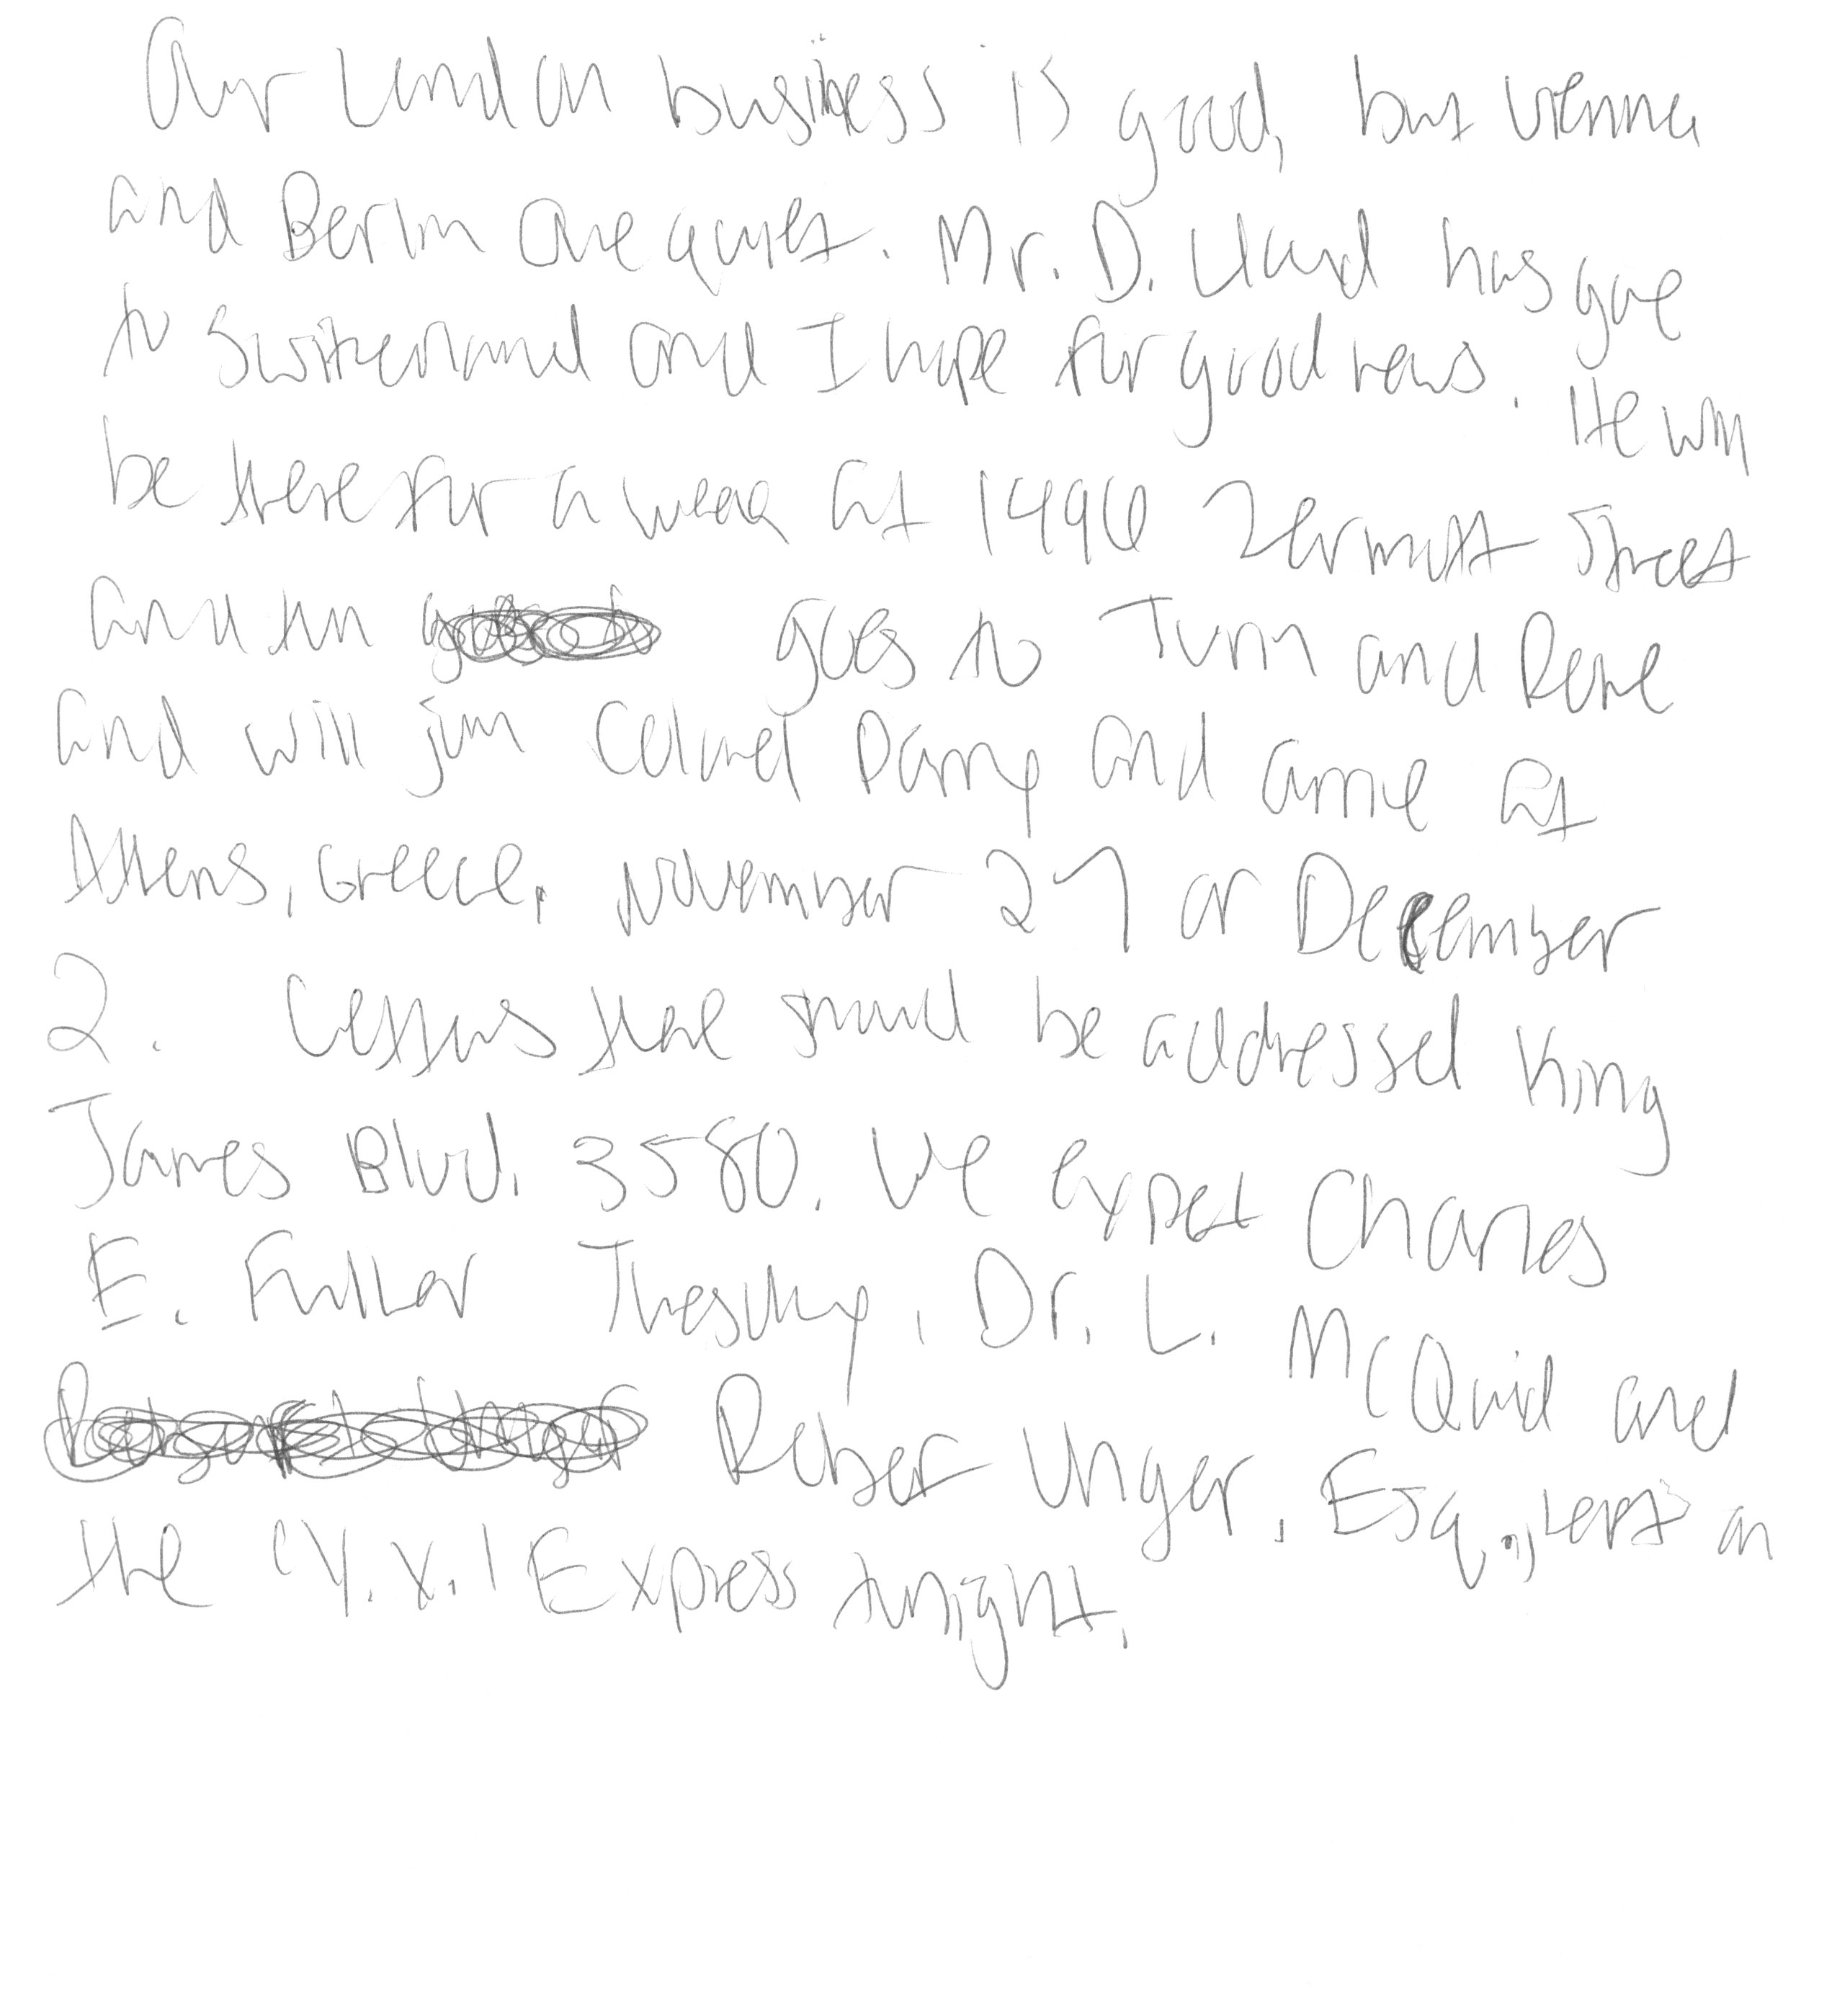 Our London business is good, but Vienna
and Berlin are quiet. Mr. D. Lloyd has gone
to Switzerland and I hope for good news. He will
be there for a week at 1496 Zermott Street
and then goes to Turin and Rome
and will join Colonel Parry and arrive at
Athens, Greece, November 27 or December
2. Letters there should be addressed King
James Blvd. 3580. We expect Charles
E. Fuller Tuesday. Dr. L. McQuid and
Robert Unger, Esq., left on
the "Y.X." Express tonight.